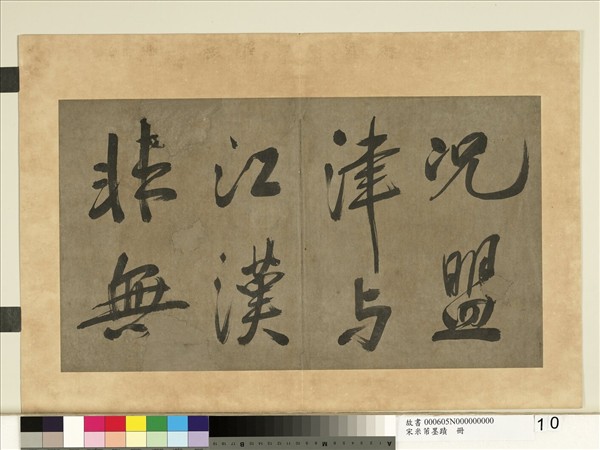 况盟
津与
江漢
非無
故書 000605N000000000
宋米芾墨蹟　冊
10